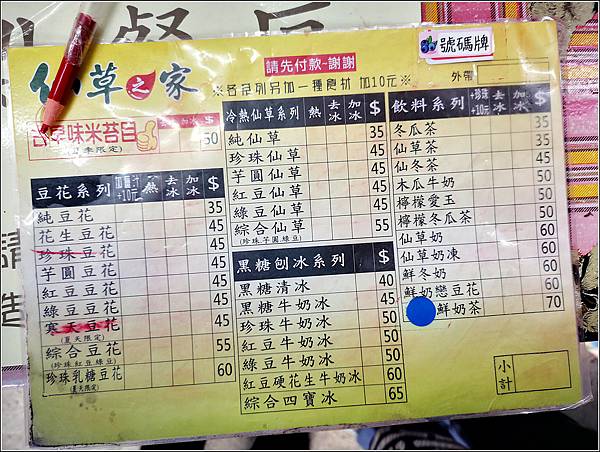 仙草之家
請先付款~謝謝
號碼牌
※各系列另加一種食材 加10元※
外帶
古早味米苔目 加冰 $
(夏季限定) 50
豆花系列 加薑汁+10元 熱 去冰 加冰 $
純豆花 35
花生豆花 45
珍珠豆花 45
芋圓豆花 45
紅豆豆花 45
綠豆豆花 45
寒天豆花 45
(夏天限定)
綜合豆花 55
(珍珠紅豆綠豆)
珍珠乳糖豆花 60
(夏天限定)
冷熱仙草系列 熱 去冰 加冰 $
純仙草 35
珍珠仙草 45
芋圓仙草 45
紅豆仙草 45
綠豆仙草 45
綜合仙草 55
(珍珠芋圓綠豆)
黑糖刨冰系列 $
黑糖清冰 40
黑糖牛奶冰 45
珍珠牛奶冰 50
紅豆牛奶冰 50
綠豆牛奶冰 50
紅豆硬花生牛奶冰 60
綜合四寶冰 65
飲料系列 +珍珠+10元 去冰 加冰 $
冬瓜茶 35
仙草茶 35
仙冬茶 45
木瓜牛奶 50
檸檬愛玉 50
檸檬冬瓜茶 50
仙草奶 60
仙草奶凍 60
鮮冬奶 60
鮮奶戀豆花 60
鮮奶茶 70
小計